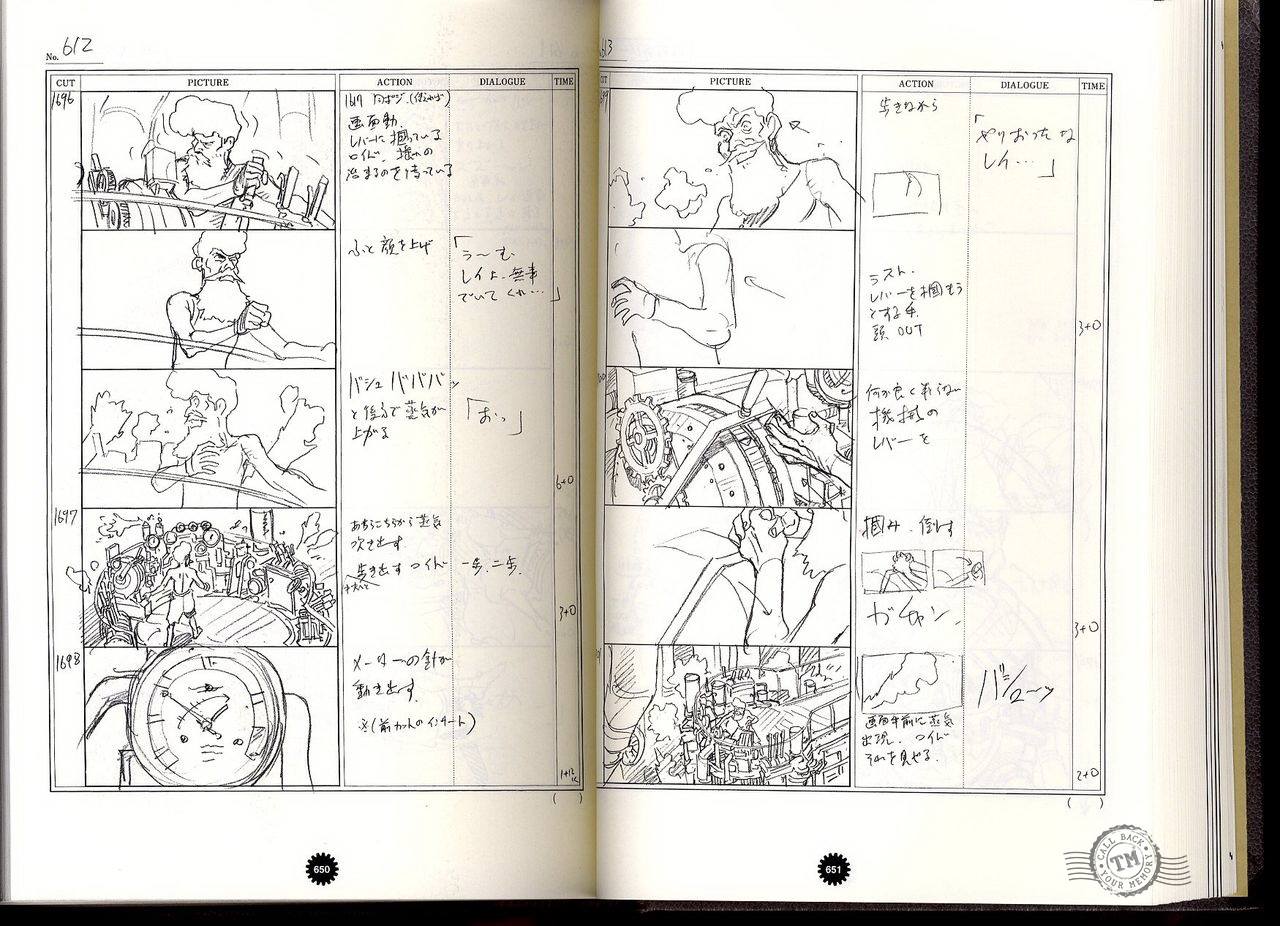 No. 612
CUT PICTURE ACTION DIALOGUE TIME
1696
画面動、
レバーに掴っている
ロイド、揺れの
治まるのを待っている
ふと顔を上げ
「う〜む
レイよ、無事
でいてくれ…」
バシュ バババッ
と後方で蒸気が
上がる
「おっ」
6+0
1697
あちらこちらから蒸気
吹き出す
歩き出すロイド 一歩、二歩、
3+0
1698
メーターの針が
動き出す。
※(前カットのインサート)
1+12
( )
650
613
CUT PICTURE ACTION DIALOGUE TIME
歩きながら
「やりおったな
レイ…」
ラスト、
レバーを掴もう
とする手、
頭 OUT
3+0
何か良く判らない
機械の
レバーを
掴み、倒す
ガチャン、
3+0
バシューッ
画面手前に蒸気
出現、ロイド
それを見やる。
2+0
( )
651
CALL BACK
TM
YOUR MEMORY